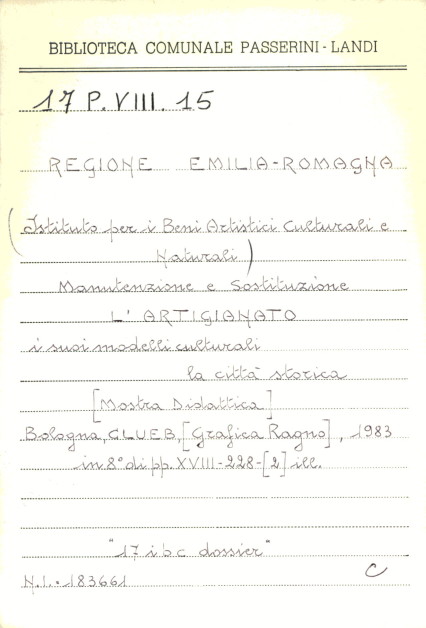 BIBLIOTECA COMUNALE PASSERINI - LANDI
17 P. VIII. 15
REGIONE EMILIA-ROMAGNA
(Istituto per i Beni Artistici Culturali e
Naturali)
Manutenzione e Sostituzione
L' ARTIGIANATO
i suoi modelli culturali
la città storica
[Mostra Didattica]
Bologna, CLUEB, [Grafica Ragno], 1983
in 8° di pp. XVIII-228-[2] ill.
"17 i b c dossier"
N.I. 183661
C